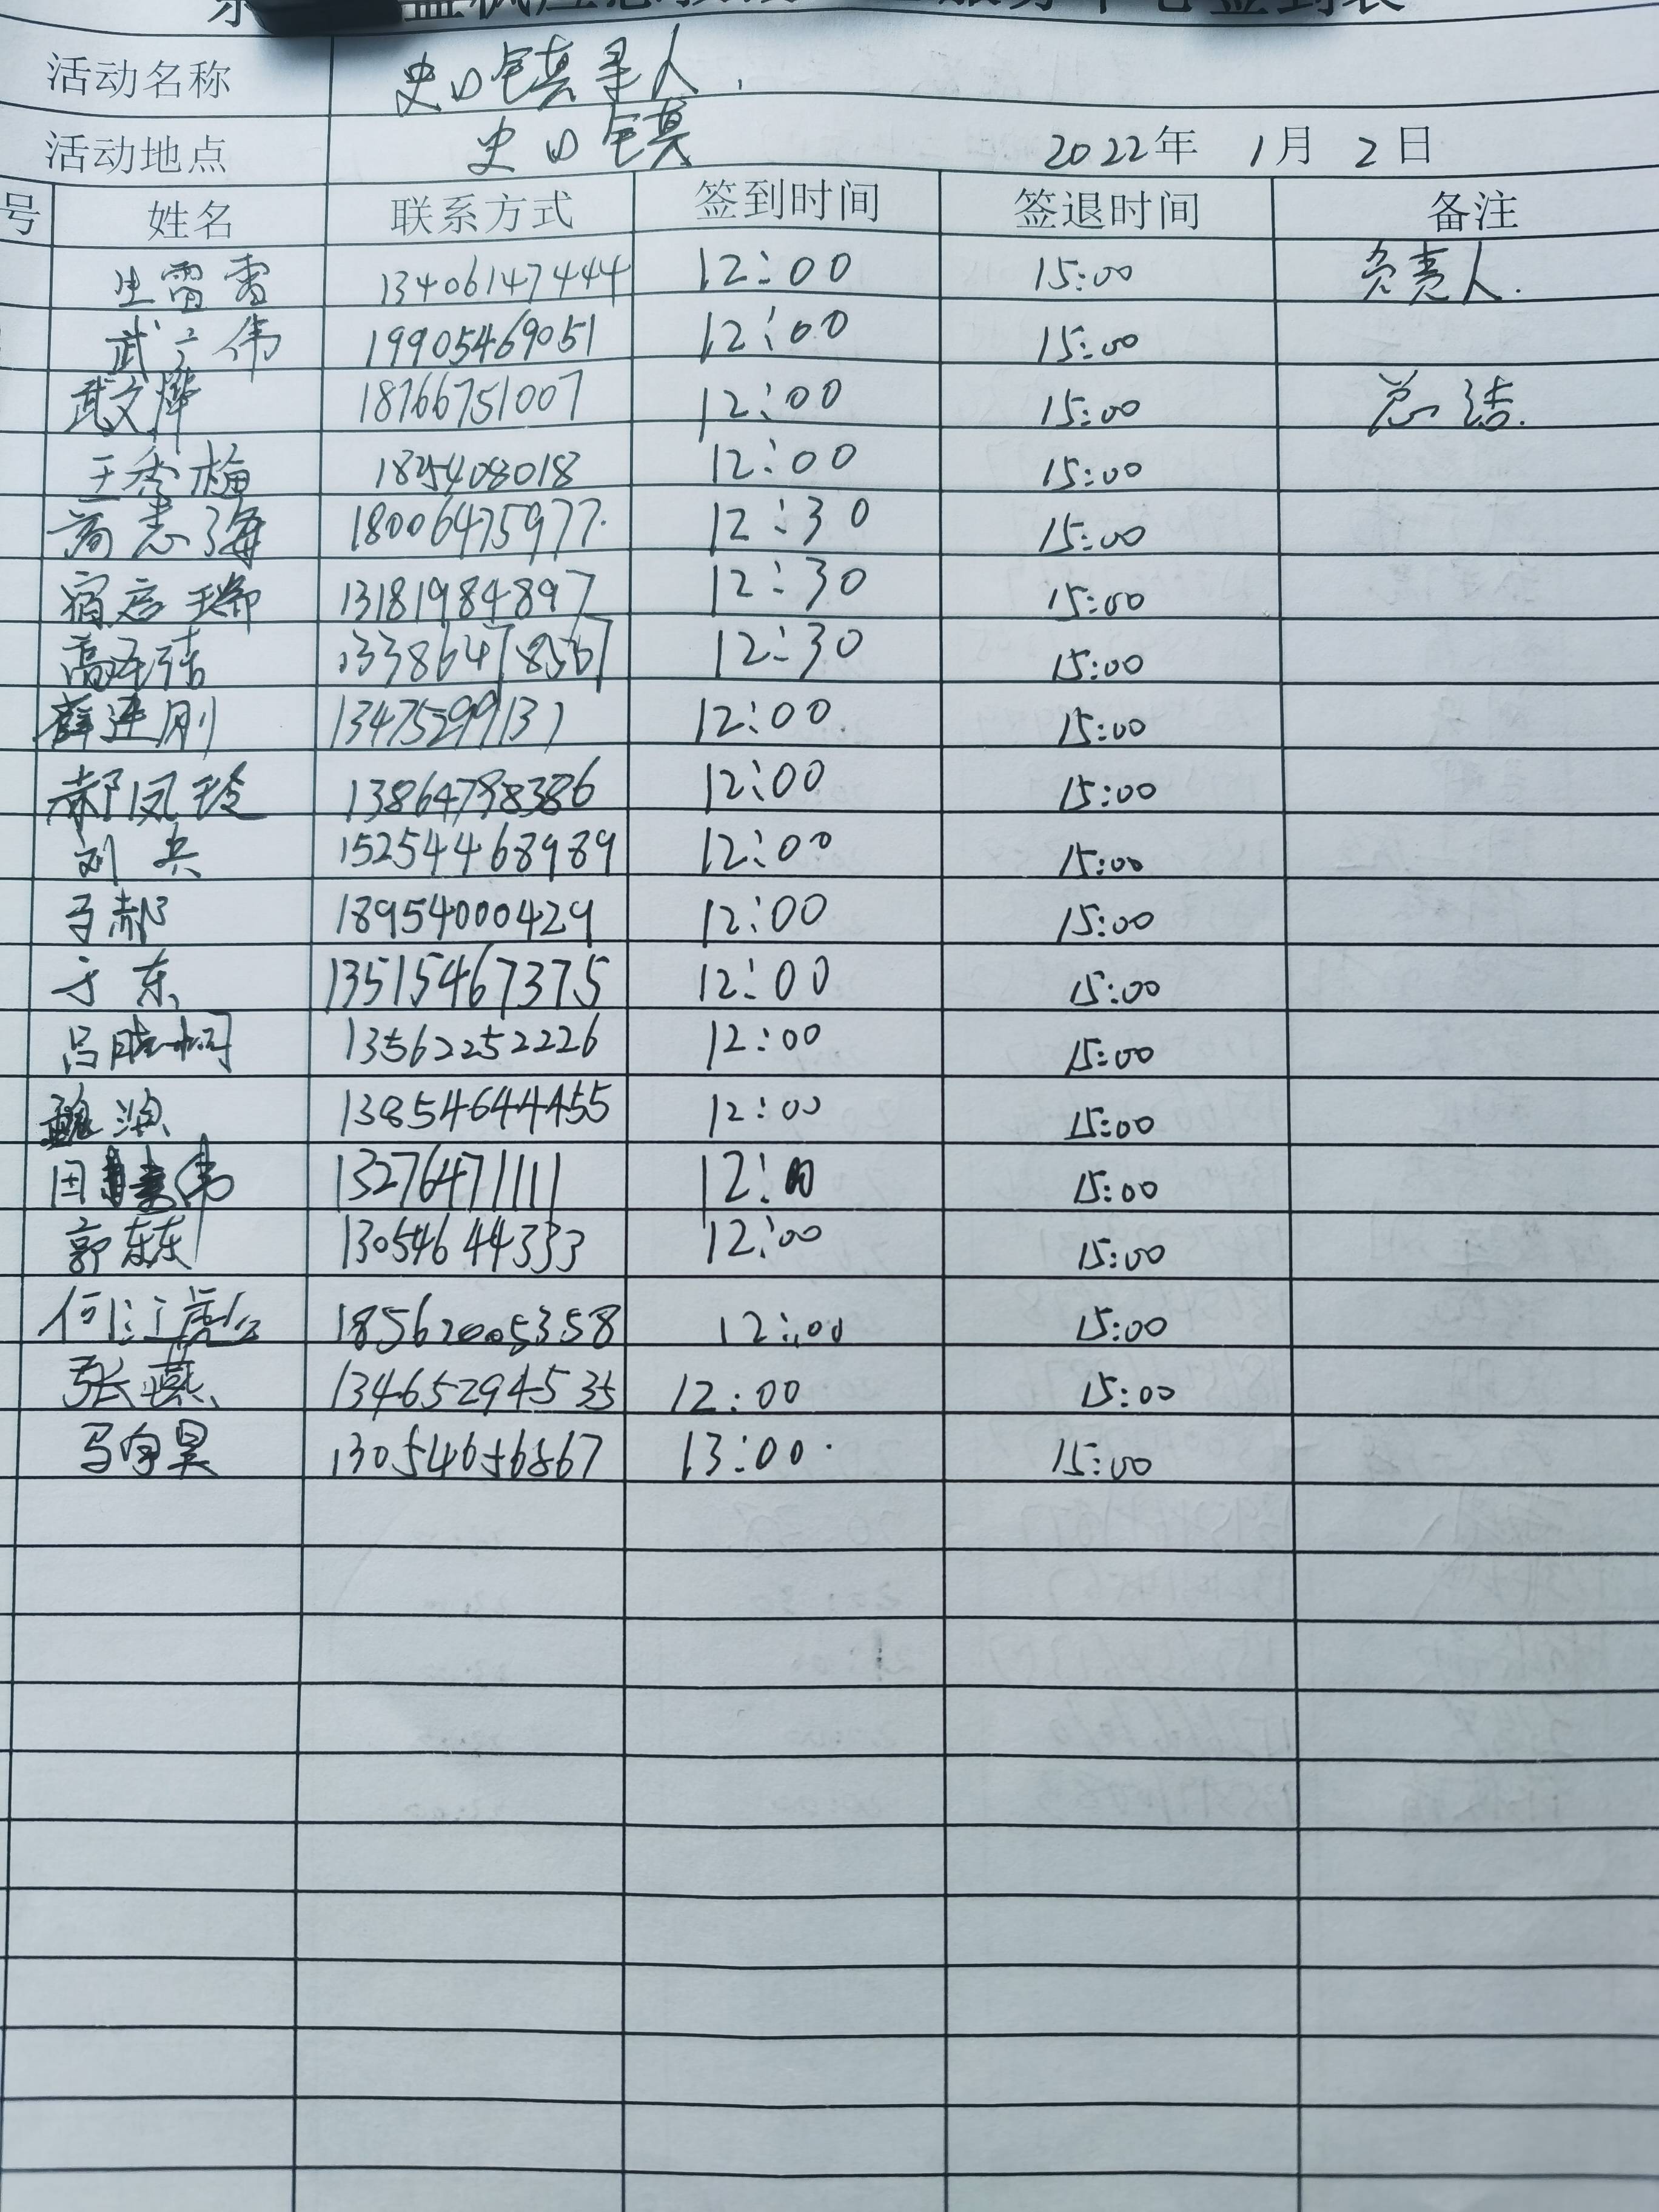 活动名称 史口镇寻人
活动地点 史口镇 2022年 1月 2日
号 姓名 联系方式 签到时间 签退时间 备注
生雷雷 13406147444 12:00 15:00 负责人.
武广伟 19905469051 12:00 15:00
武文烨 18766751007 12:00 15:00 总结.
王秀梅 12:00 15:00
18006475977 12:30 15:00
13181984897 12:30 15:00
12:30 15:00
薛连刚 13475299131 12:00 15:00
郝凤玲 13864798386 12:00 15:00
刘兵 15254468989 12:00 15:00
马郝 18954000429 12:00 15:00
于东 13515467375 12:00 15:00
13562252226 12:00 15:00
13854644455 12:00 15:00
13276471111 12:00 15:00
郭东东 13054644333 12:00 15:00
12:00 15:00
张燕 13465294535 12:00 15:00
13:00 15:00